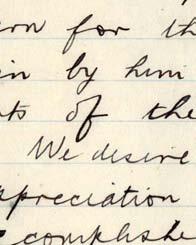 ern for th
in by him
ts of the
We desire
ppreciation
complishe